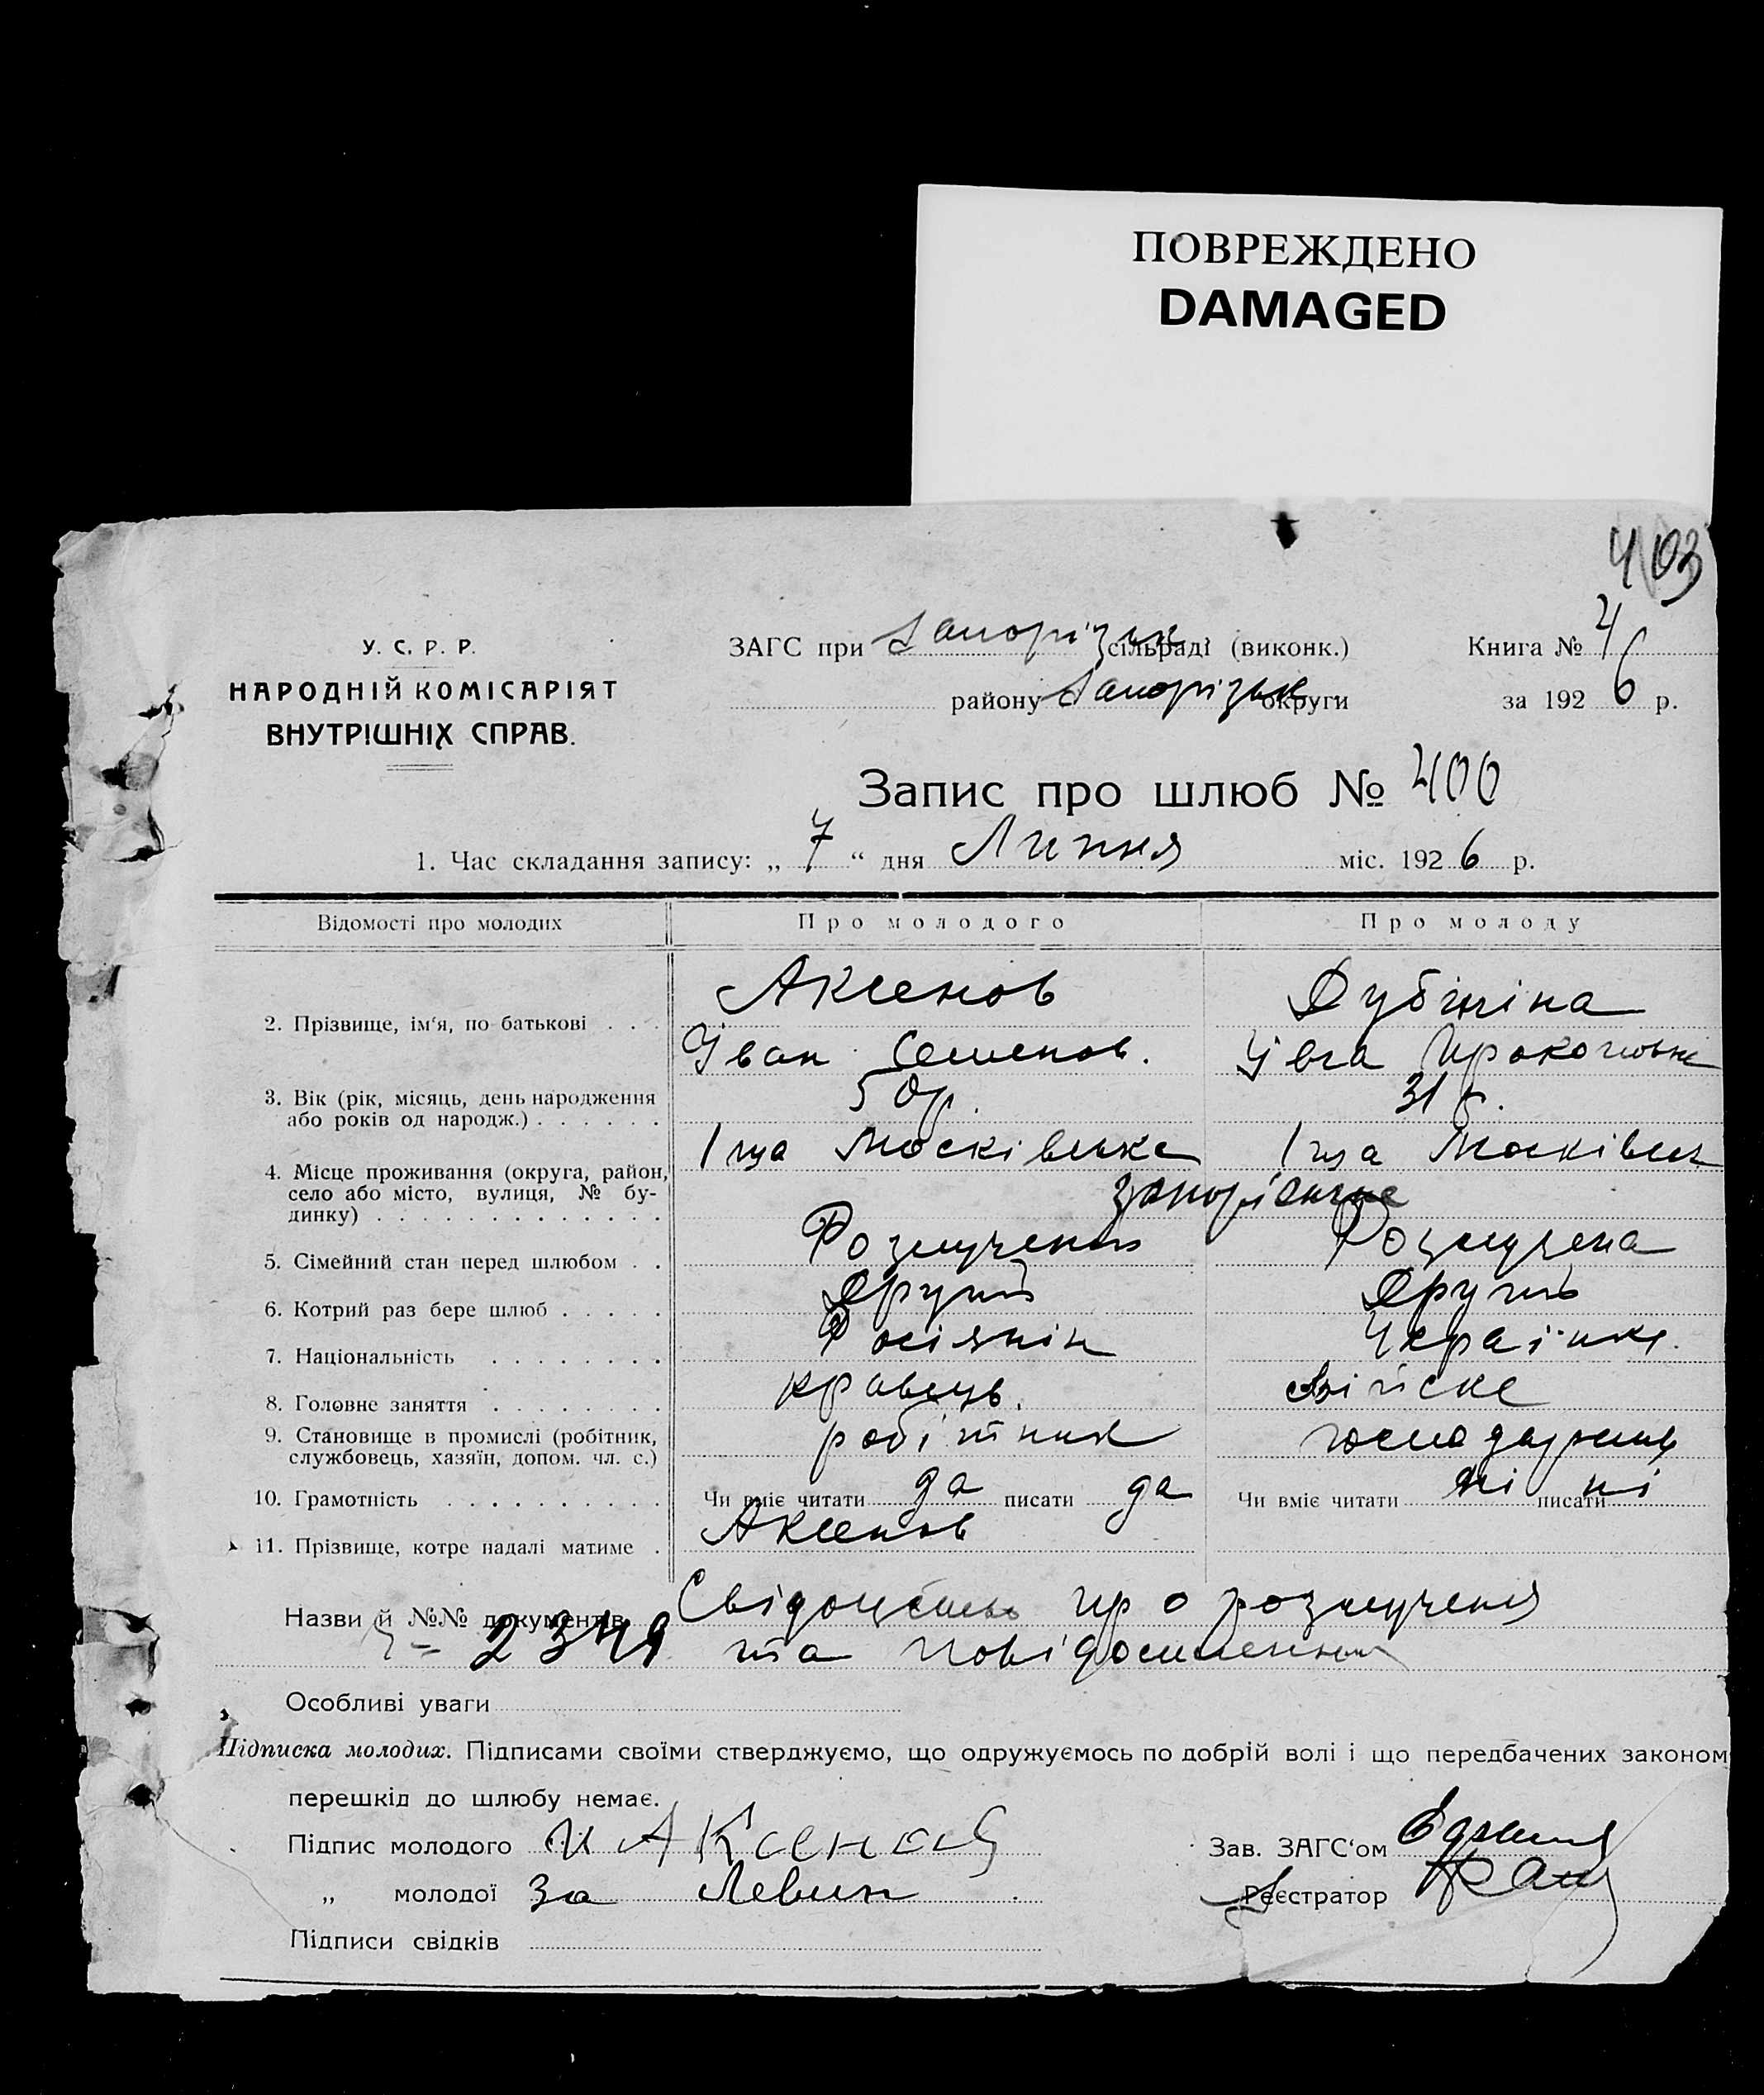 ПОВРЕЖДЕНО
DAMAGED
403
У. С. Р. Р.
НАРОДНІЙ КОМІСАРІЯТ
ВНУТРІШНІХ СПРАВ.
ЗАГС при Запорізьк. сільраді (виконк.) Книга № 4
району Запорізьк округи за 1926 р.
Запис про шлюб № 400
1. Час складання запису: „ 7 “ дня Липня міс. 1926 р.
Відомості про молодих Про молодого Про молоду
2. Прізвище, ім‘я, по батькові . . . Аксенов Дубініна
Іван Семенов. Івга Прокоповна
3. Вік (рік, місяць, день народження або років од народж.) . . . . . . 50 р. 31 р.
4. Місце проживання (округа, район, село або місто, вулиця, № будинку) . . . . . . . . . . . . . 1ша Москівська 1ша Москівськ
Запоріжже
5. Сімейний стан перед шлюбом . . Розлучений Розлучена
6. Котрий раз бере шлюб . . . . . Другий Другий
7. Національність . . . . . . . . Росіянін Українка.
8. Головне заняття . . . . . . . . кравець.
9. Становище в промислі (робітник, службовець, хазяїн, допом. чл. с.) робітник
10. Грамотність . . . . . . . . . . Чи вміє читати да писати да Чи вміє читати ні писати ні
11. Прізвище, котре надалі матиме . Аксенов
Назви й №№ документів Свідоцтво про розлучення
2349 та повідомлення
Особливі уваги
Підписка молодих. Підписами своїми стверджуємо, що одружуємось по добрій волі і що передбачених законом
перешкід до шлюбу немає.
Підпис молодого И Аксенов Зав. ЗАГС‘ом
„ молодої За Левин Реєстратор
Підписи свідків